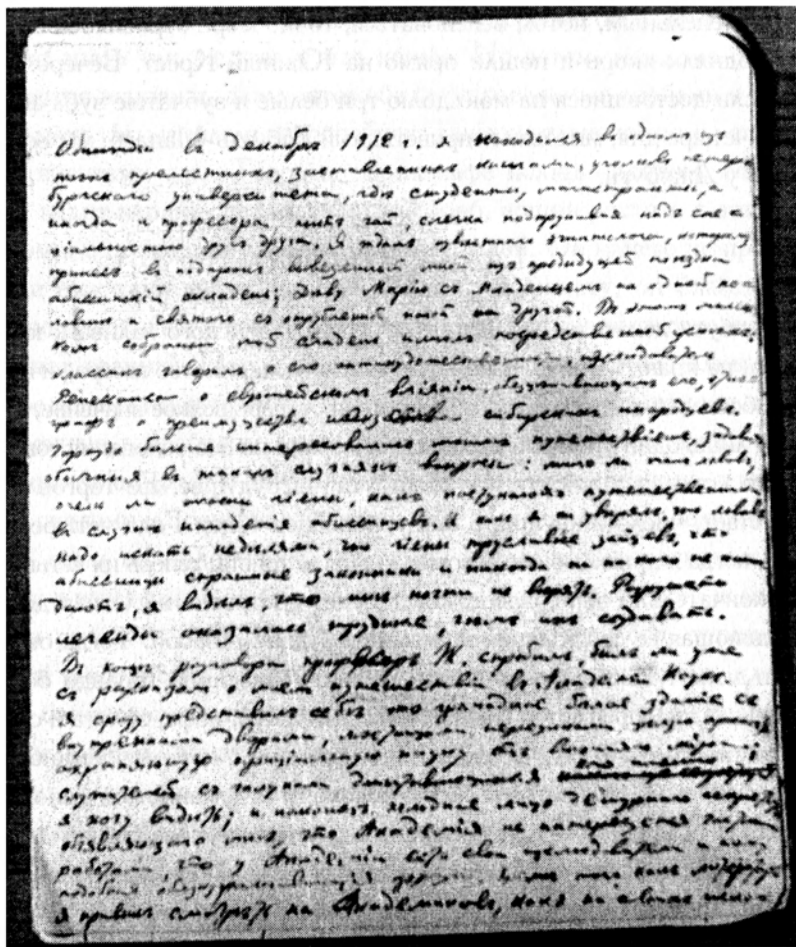 Однажды въ декабрѣ 1912 г. я находился въ одномъ изъ
тѣхъ прелестныхъ, заставленныхъ книгами, уголковъ петер-
бургскаго университета, гдѣ студенты, магистранты, а
иногда и профессора пьютъ чай, слегка подтрунивая надъ спе-
ціальностью другъ друга. Я ждалъ извѣстнаго египтолога, которому
принесъ въ подарокъ вывезенный мной изъ предыдущей поѣздки
абиссинскій складень: Дѣву Марію съ младенцемъ на одной поло-
винѣ и святого съ отрубленной ногой на другой. Въ этомъ малень-
комъ собраніи мой складень имѣлъ посредственный успѣхъ:
классикъ говорилъ о его антихудожественности, изслѣдователь
Ренессанса о европейскомъ вліяніи, обезцѣнивающемъ его, этно-
графъ о преимуществѣ искусства сибирскихъ инородцевъ.
Гораздо больше интересовались моимъ путешествіемъ, задавая
обычные въ такихъ случаяхъ вопросы: много ли тамъ львовъ,
очень ли опасны гіены, какъ поступаютъ путешественники
въ случаѣ нападенія абиссинцевъ. И какъ я ни увѣрялъ, что львовъ
надо искать недѣлями, что гіены трусливѣе зайцевъ, что
абиссинцы страшные законники и никогда ни на кого не напа-
даютъ, я видѣлъ что мнѣ почти не вѣрятъ. Разрушать
легенды оказалось труднѣе чѣмъ ихъ создавать.
Въ концѣ разговора профессоръ Ж. спросилъ, былъ ли я уже
съ разсказомъ о моемъ путешествіи въ Академіи Наукъ.
Я сразу представилъ себѣ это громадное бѣлое зданіе съ
внутренними дворами, лѣстницами, переулками, цѣлую крѣпость,
охраняющую официальную науку отъ внѣшняго міра;
служителей съ галунами, допытывающихся кого именно
я хочу видѣть; и наконецъ холодное лицо дежурнаго секретаря,
объявляющаго мнѣ, что Академія не интересуется частными
работами, что у Академіи есть свои изслѣдователи и тому
подобныя обезкураживающія фразы. Кромѣ того какъ литераторъ
я привыкъ смотрѣть на Академиковъ, какъ на своихъ искон-